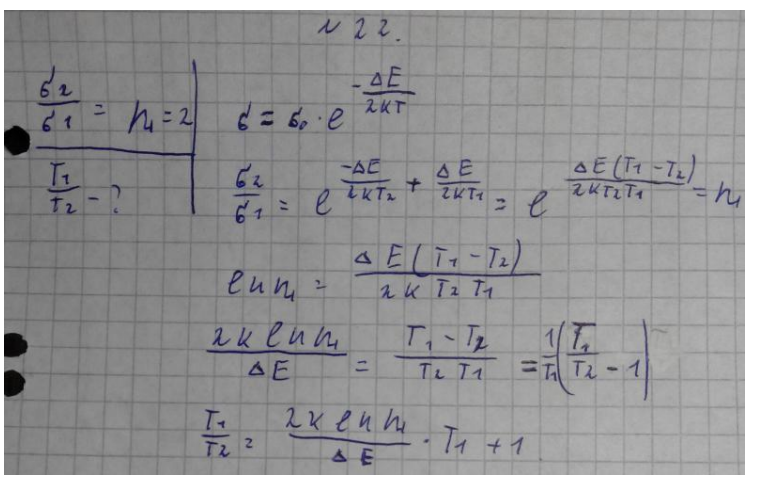 N 22.
σ2/σ1 = n1 = 2
T1/T2 - ?
σ = σ0 · e^(-ΔE/2кТ)
σ2/σ1 = e^(-ΔE/2кT2 + ΔE/2кT1) = e^(ΔE(T1 - T2)/2кT2T1) = n1
ln n1 = ΔE(T1 - T2)/2к T2 T1
2к ln n1/ΔE = T1 - T2/T2 T1 = 1/T1(T1/T2 - 1)
T1/T2 = 2к ln n1/ΔE · T1 + 1